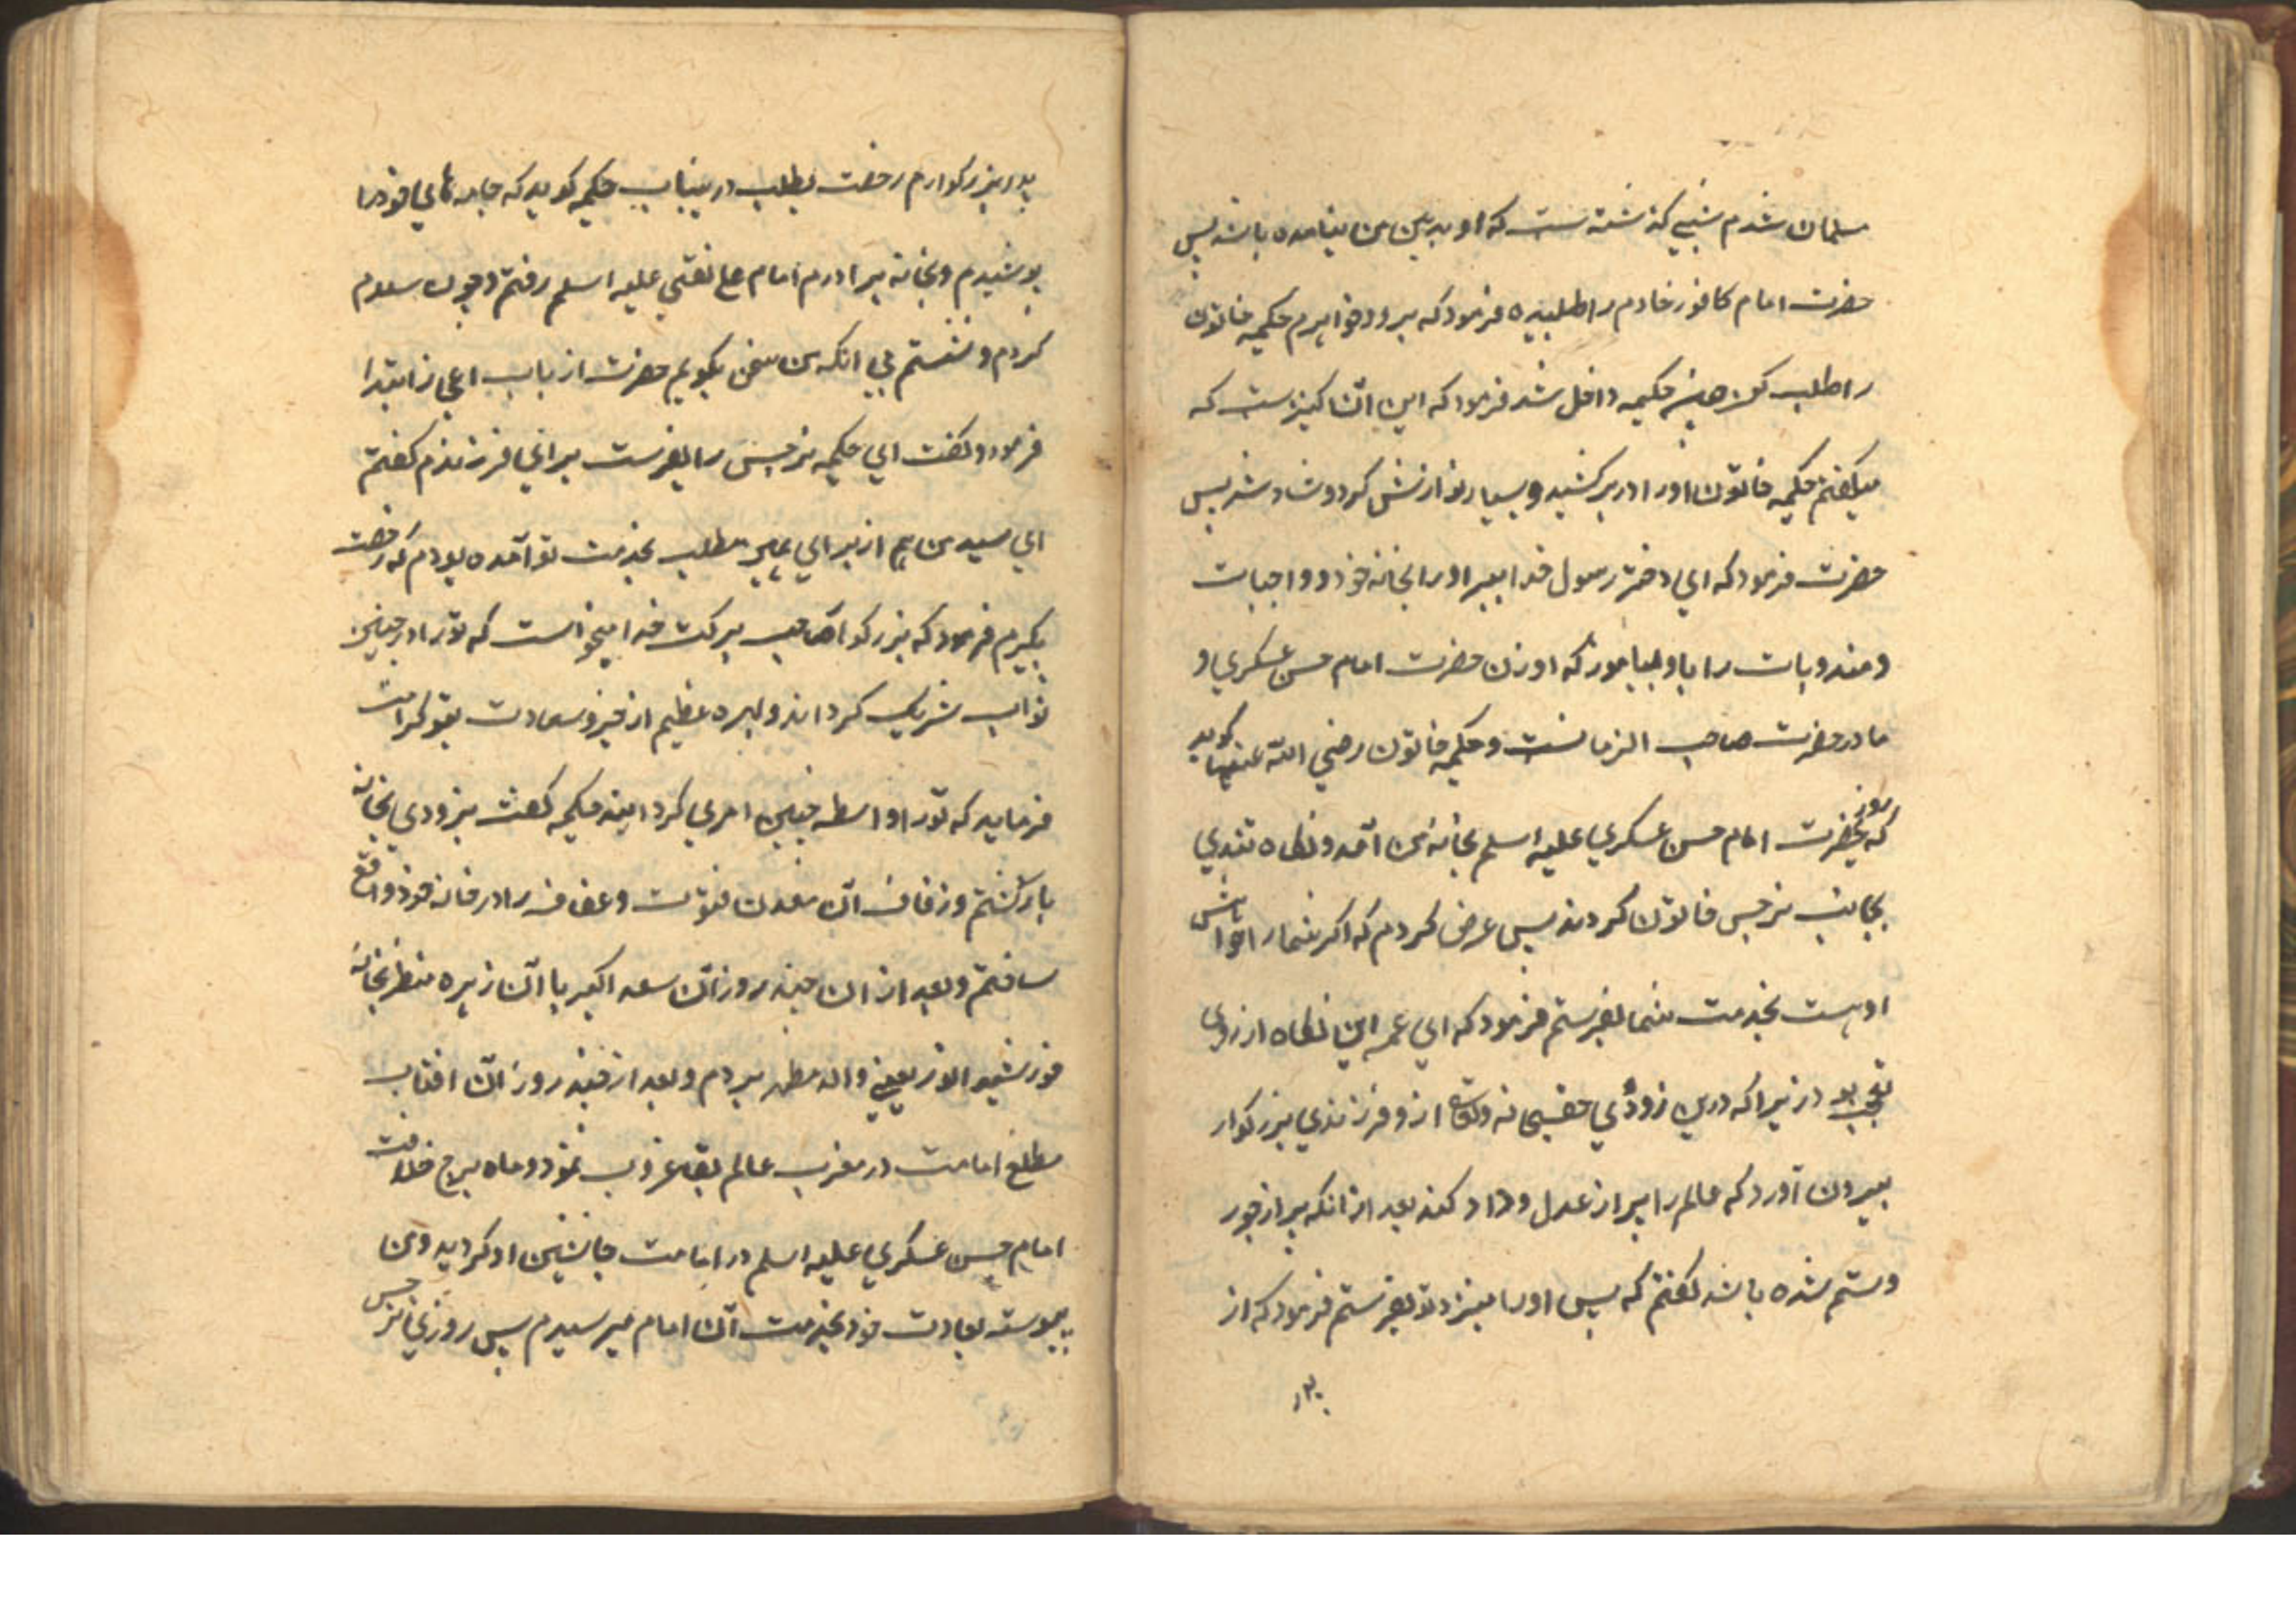 مسلمان شدم شبی گذشته است که او بدیدن من نیامده باشد پس
حضرت امام کافور خادم را طلبیده فرمود که برو و خواهرم حکیمه خاتون
را طلب کن چون حکیمه داخل شد فرمود که این آن کنیزست که
میگفتم حکیمه خاتون او را در بر کشید و بسیار نوازش کرد و شاد شد پس
حضرت فرمود که ای دختر رسول خدا ببر او را بخانه خود و واجبات
و مندوبات را باو بیاموز که او زن حضرت امام حسن عسکری و
مادر حضرت صاحب الزمانست و حکیمه خاتون رضی الله عنها گوید
که روزی حضرت امام حسن عسکری علیه اسلم بخانه من آمد و نگاه تندی
بجانب نرجس خاتون کردند پس عرض کردم که اگر شما را خواهش
او هست بخدمت شما بفرستم فرمود که ای عمه این نگاه از روی
تعجب بود زیرا که درین زودی حقسبحانه وتعالی ازو فرزندی بزرگوار
بیرون آورد که عالم را پر از عدل و داد کند بعد از آنکه پر از جور
و ستم شده باشد گفتم که پس او را بنزد تو بفرستم فرمود که از
پدر
پدر بزرگوارم رخصت بطلب درینباب حکیمه گوید که جامه های خود را
پوشیدم و بخانه برادرم امام علی نقی علیه اسلم رفتم و چون سلام
کردم و نشستم بی انکه من سخن بگویم حضرت از باب اعجاز ابتدا
فرمود و گفت ای حکیمه نرجس را بفرست برای فرزندم گفتم
ای سید من هم از برای همین مطلب بخدمت تو آمده بودم که رخصت
بگیرم فرمود که بزرگوار صاحب برکت خدا میخواست که تو را در چنین
ثواب شریک گرداند و بهره عظیم از خیر و سعادت بتو کرامت
فرماید که تو را واسطه چنین امری گردانید حکیمه گفت بزودی بخانه
بازگشتم و زفاف آن معدن فتوت و عفاف را در خانه خود واقع
ساختم و بعد از ان چند روز آن سعد اکبر با آن زهره منظر بخانه
خورشید انور یعنی والد مطهر بردم و بعد از چند روز آن افتاب
مطلع امامت در مغرب عالم بقا غروب نمود و ماه برج خلافت
امام حسن عسکری علیه اسلم در امامت جانشین او گردید و من
پیوسته بعادت خود بخدمت آن امام میرسیدم پس روزی نرجس